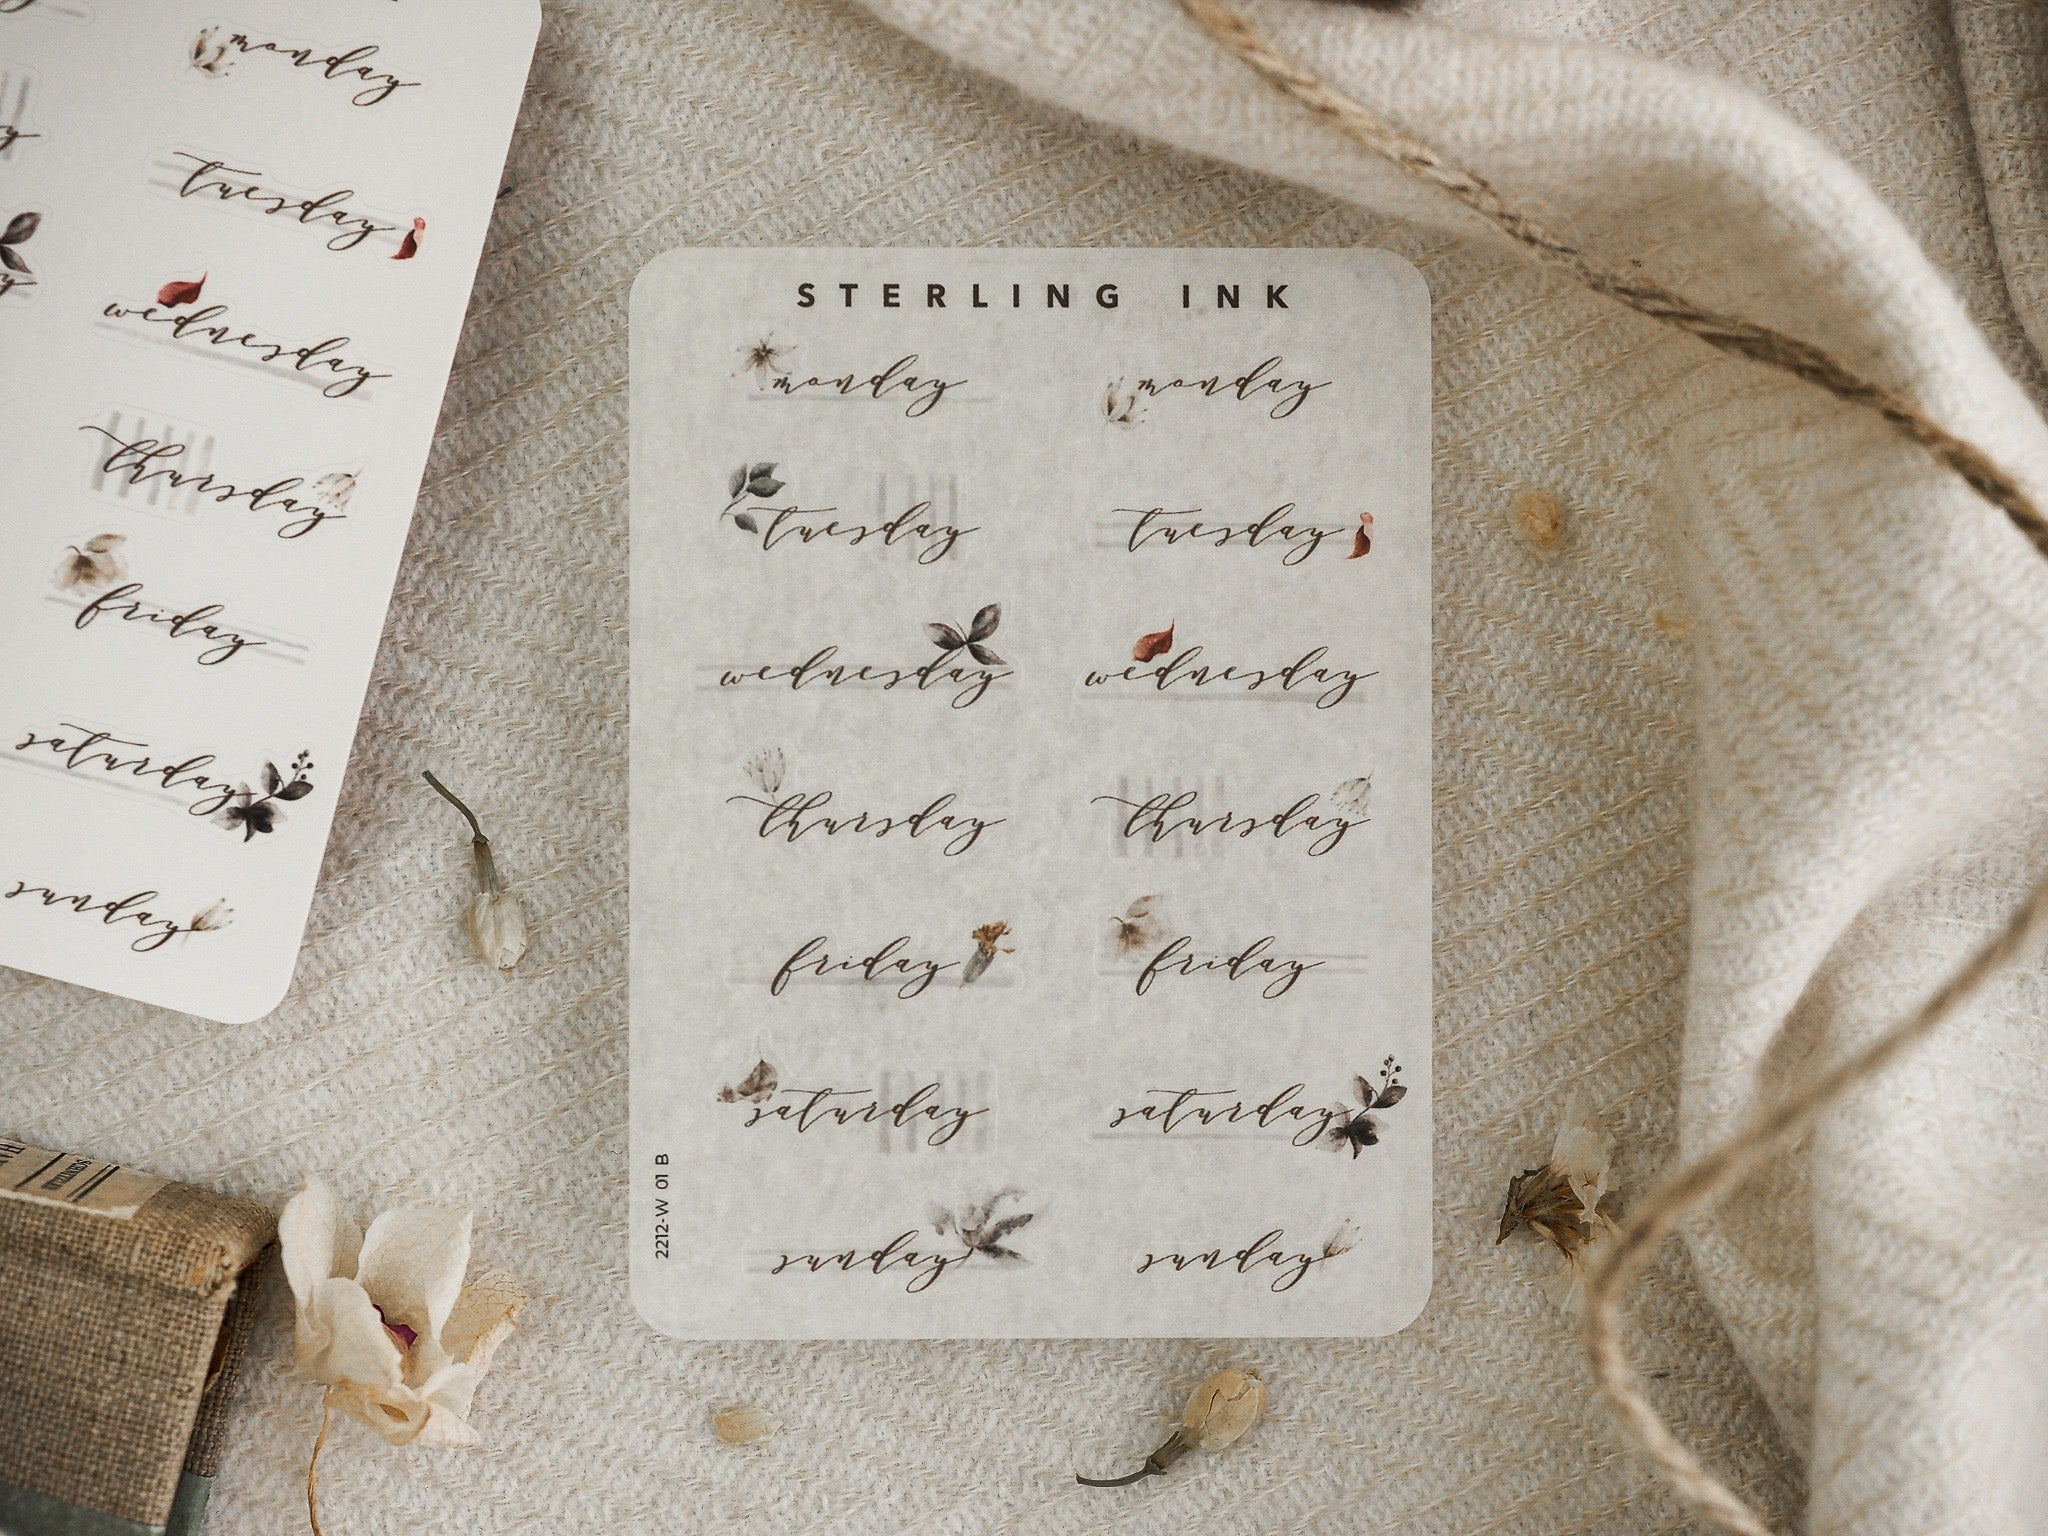 monday
tuesday
wednesday
thursday
friday
saturday
sunday
STERLING INK
monday monday
tuesday tuesday
wednesday wednesday
thursday thursday
friday friday
saturday saturday
sunday sunday
2212-W 01 B